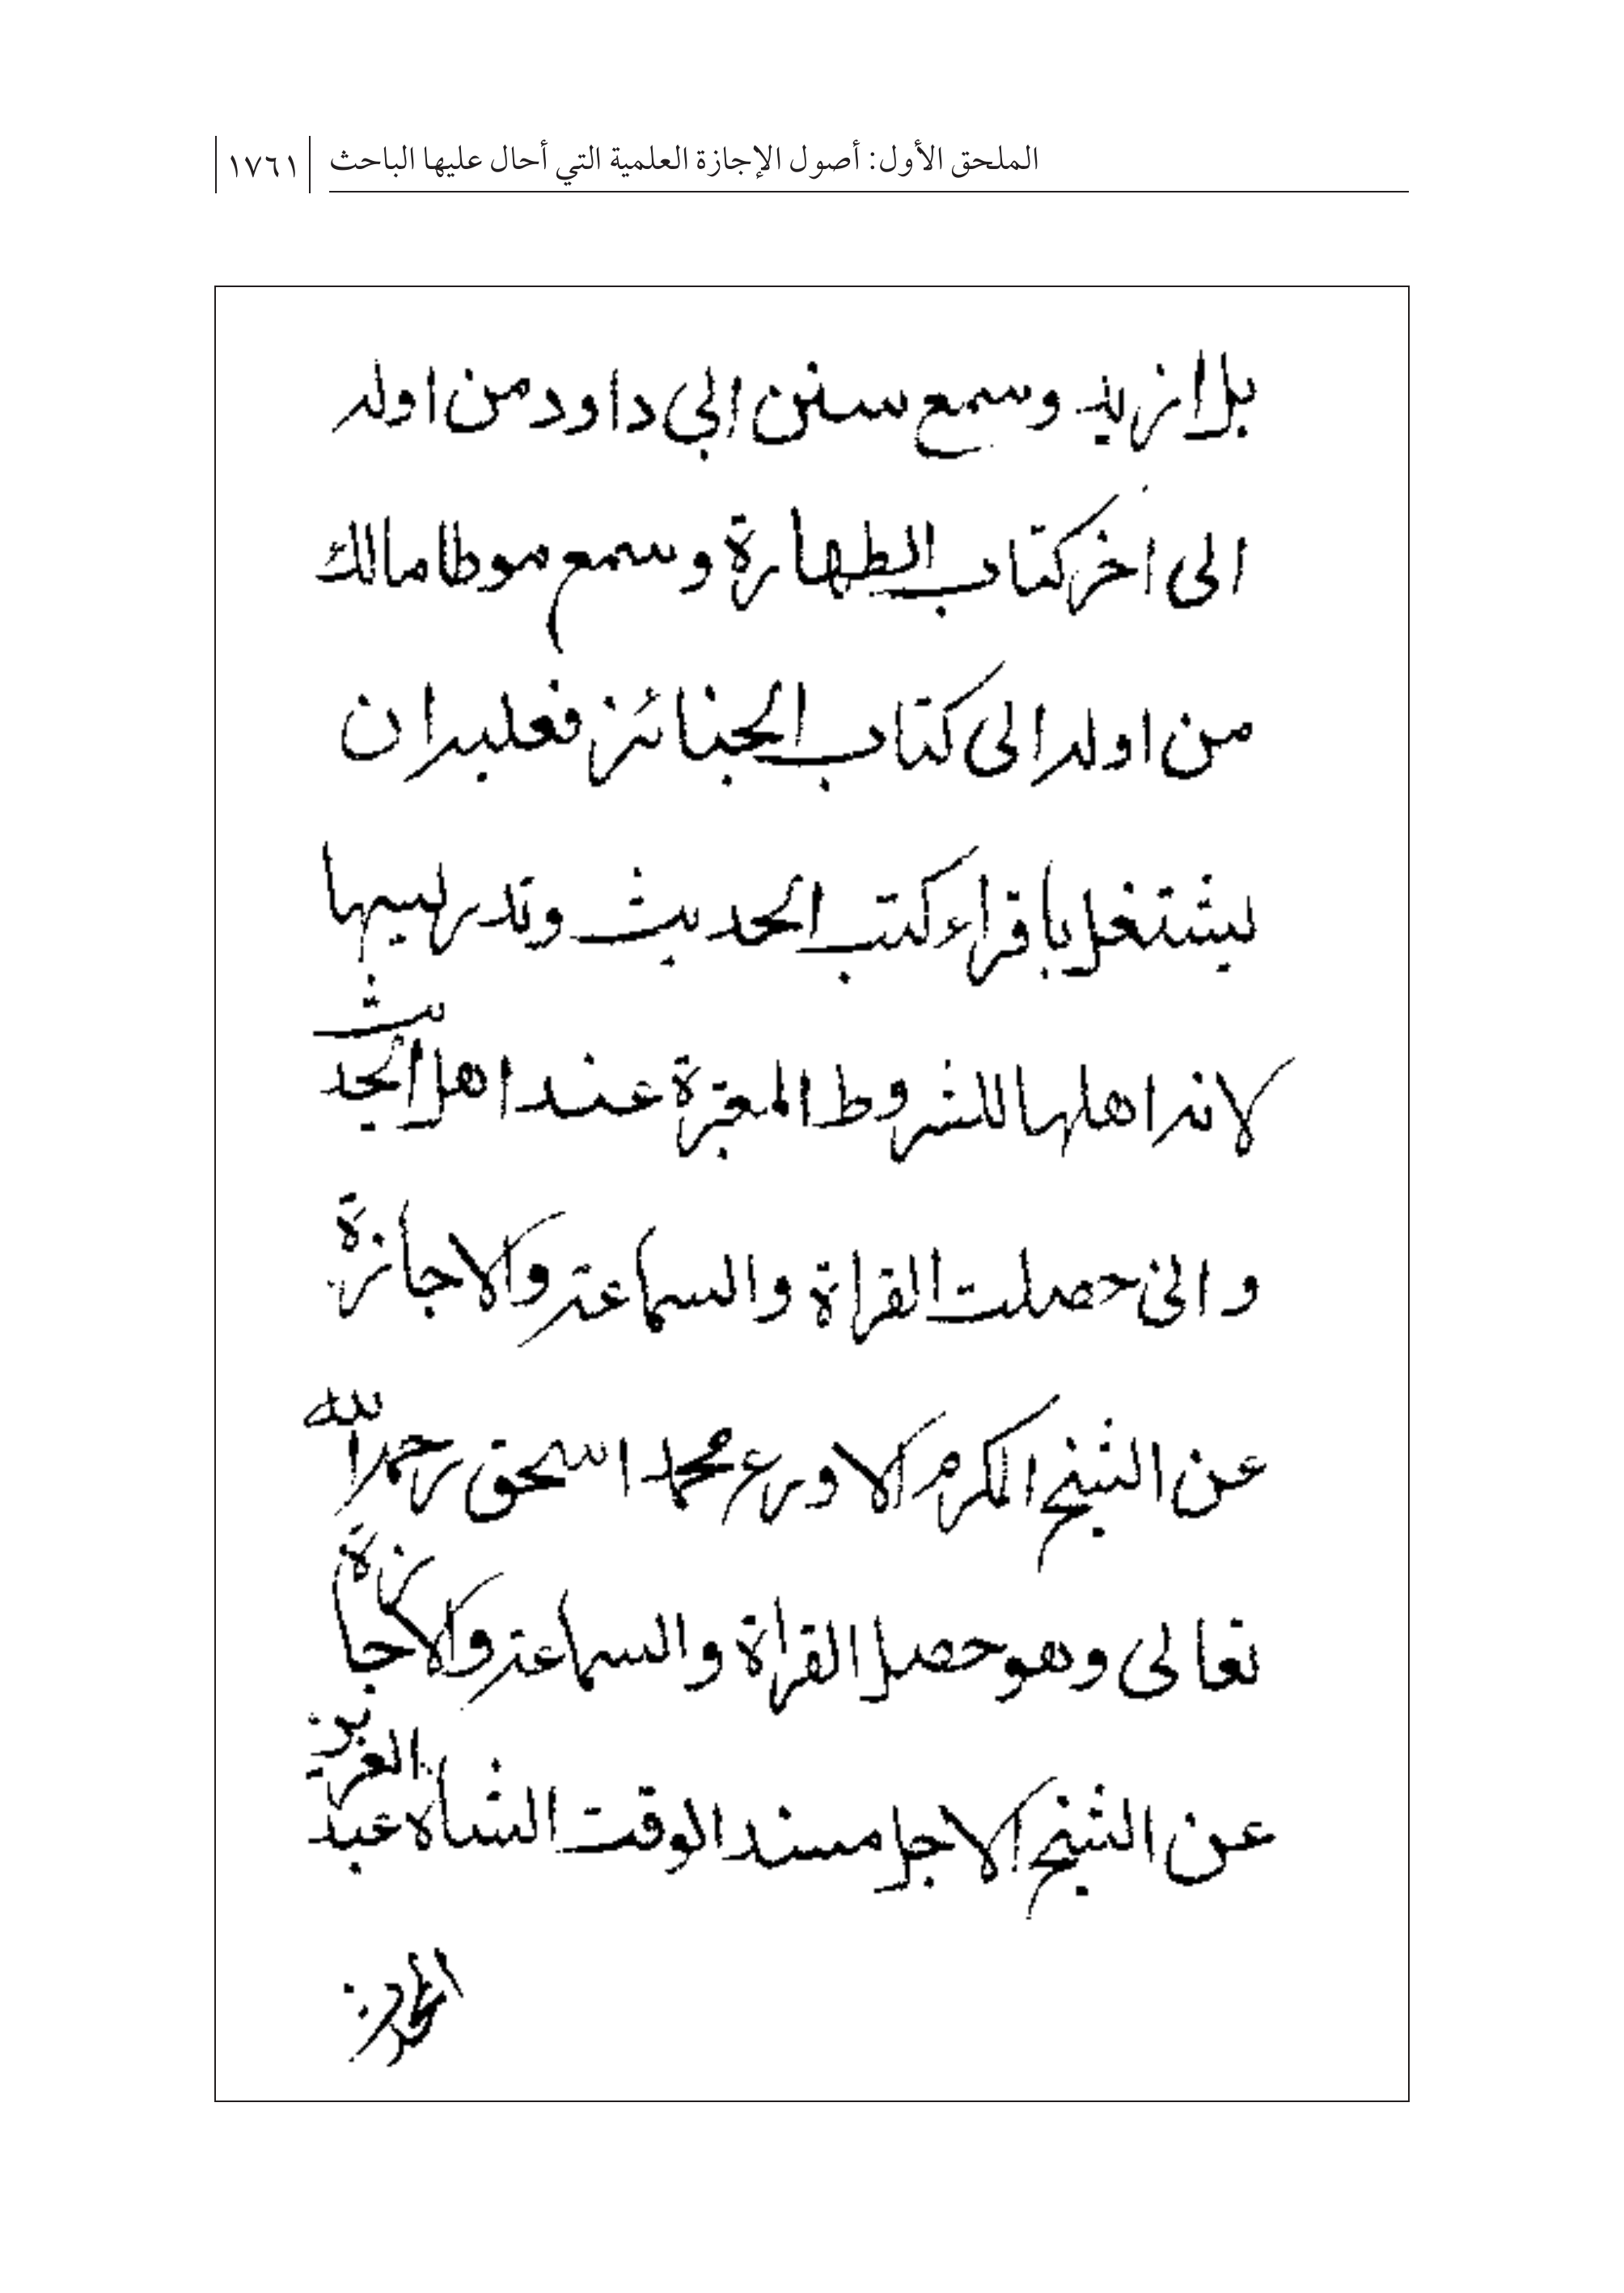 الملحق الأول: أصول الإجازة العلمية التي أحال عليها الباحث ١٧٦١
بل ازيد وسمع سنن ابي داود من اوله
الى اخر كتاب الطهارة وسمع موطا مالك
من اوله الى كتاب الجنائز فعليه ان
يشتغل باقراء كتب الحديث وتدريسها
لانه اهلها للشروط المعتبرة عند اهل الحديث
واني حصلت القراة والسماعة والاجازة
عن الشيخ المكرم الاورع محمد اسحق رحمه الله
تعالى وهو حصل القراة والسماعة والاجازة
عن الشيخ الاجل مسند الوقت الشاه عبد العزيز